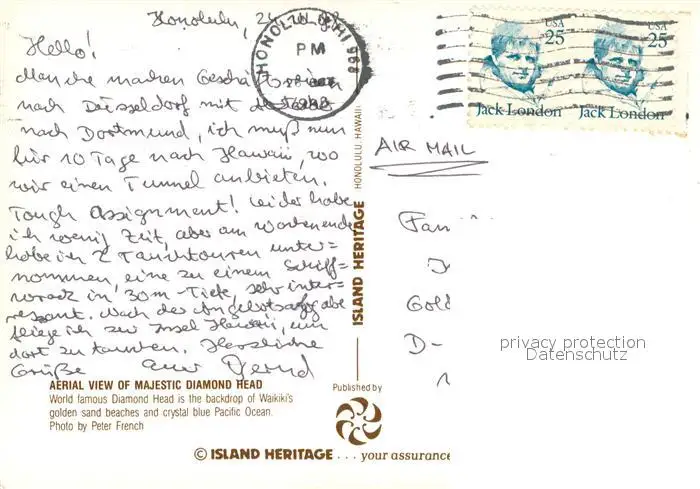 Honolulu, 24.
Hello!
Manche machen Geschäftsreisen
nach Düsseldorf mit
nach Dortmund, ich muß nun
für 10 Tage nach Hawaii, wo
wir einen Tunnel anbieten.
Tough Assignment! Leider habe
ich wenig Zeit, aber am Wochenende
habe ich 2 Tauchtouren unter=
nommen, eine zu einem Schiff=
wrack in 30m-Tiefe, sehr inter=
ressant. Nach der Angebotsabgabe
fliege ich zur Insel Hawaii, um
dort zu tauchen. Herzliche
Grüße Euer Bernd
HONOLULU HI 968
PM
1988
USA
25
Jack London
USA
25
Jack London
AIR MAIL
Fam
Gold
D-
privacy protection
Datenschutz
HONOLULU, HAWAII
ISLAND HERITAGE
AERIAL VIEW OF MAJESTIC DIAMOND HEAD
World famous Diamond Head is the backdrop of Waikiki's
golden sand beaches and crystal blue Pacific Ocean.
Photo by Peter French
Published by
© ISLAND HERITAGE . . . your assurance